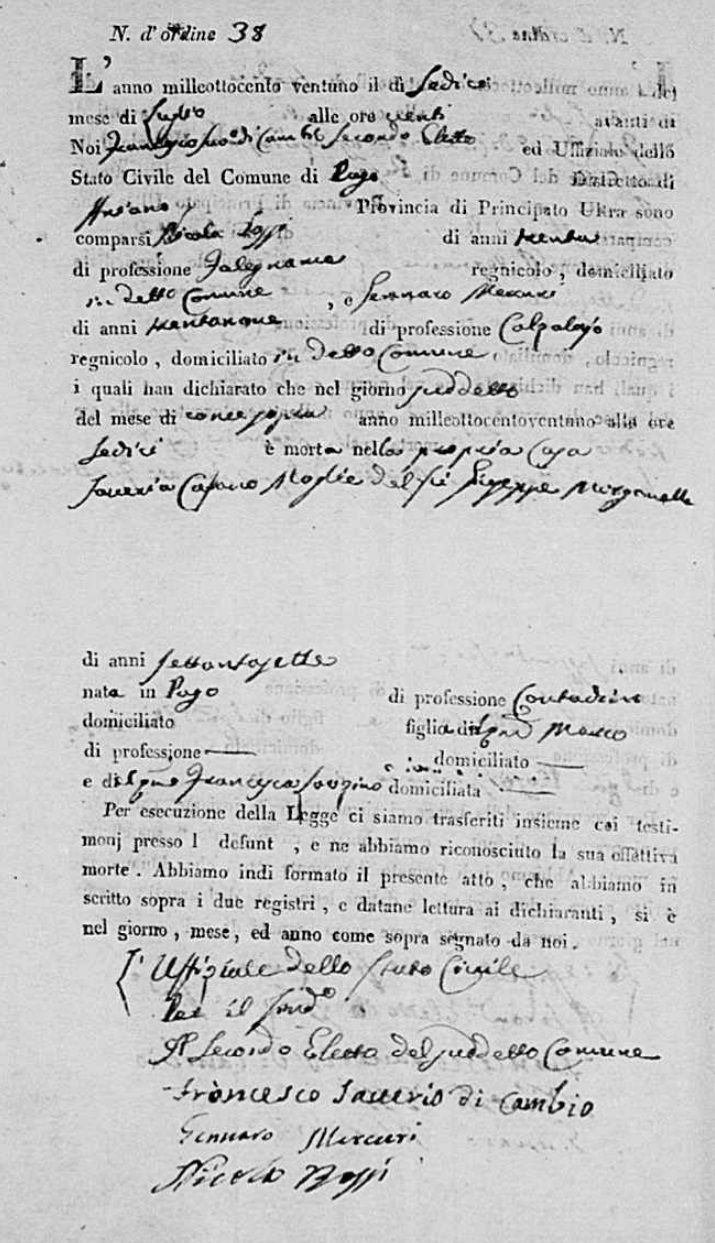 N. d'ordine 38
L'anno milleottocento ventuno il dì Sedici del
mese di Luglio alle ore venti avanti di
Noi Francesco Sav.o di Cambio Secondo Eletto ed Uffiziale dello
Stato Civile del Comune di Pago Distretto di
Ariano Provincia di Principato Ultra sono
comparsi Nicola Rossi di anni trenta
di professione Falegname regnicolo, domiciliato
in detto Comune, e Gennaro Mercuri
di anni trentanove di professione Calzolajo
regnicolo, domiciliato in detto Comune
i quali han dichiarato che nel giorno suddetto
del mese di come sopra anno milleottocentoventuno alle ore
Sedici è morta nella propria Casa
Saveria Moglie del fù Giuseppe
di anni settantasette
nata in Pago di professione Contadina
domiciliato figlia del qm Marco
di professione — domiciliato —
e di qm Francesca domiciliata —
Per esecuzione della Legge ci siamo trasferiti insieme coi testi-
monj presso l defunt , e ne abbiamo riconosciuto la sua effettiva
morte. Abbiamo indi formato il presente atto, che abbiamo in
scritto sopra i due registri, e datane lettura ai dichiaranti, si è
nel giorno, mese, ed anno come sopra segnato da noi.
L'Uffiziale dello Stato Civile
Per il Sind.o
Il Secondo Eletto del suddetto Comune
Francesco Saverio di Cambio
Gennaro Mercuri
Nicola Rossi